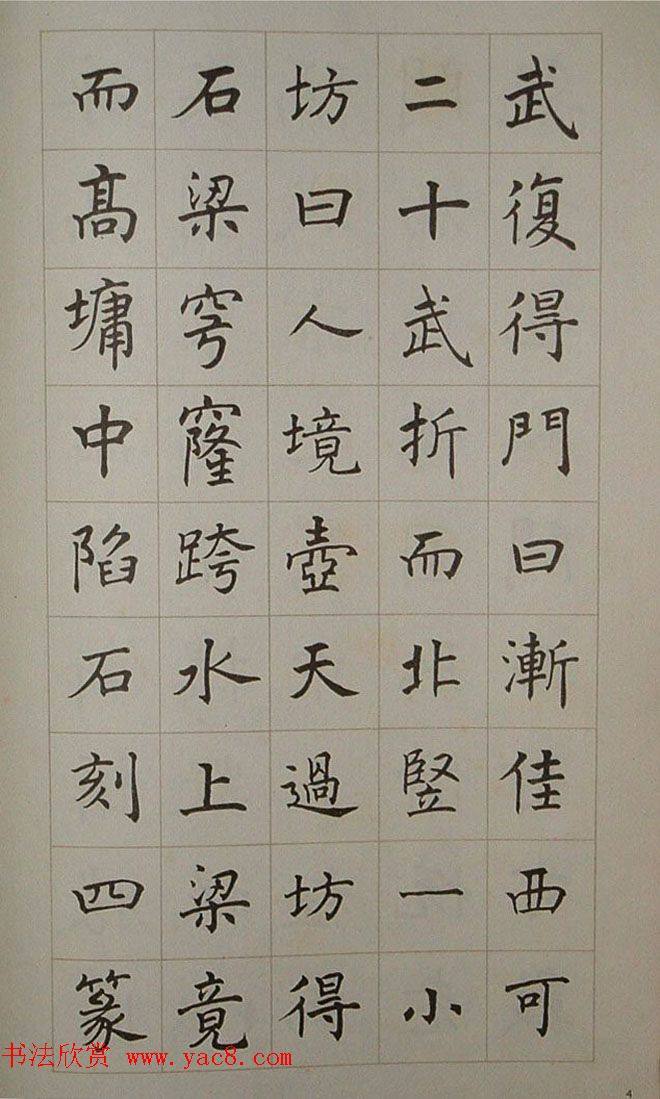 武復得門曰漸佳西可
二十武折而北竪一小
坊曰人境壺天過坊得
石梁穹窿跨水上梁竟
而高墉中陷石刻四篆
书法欣赏 www.yac8.com
4